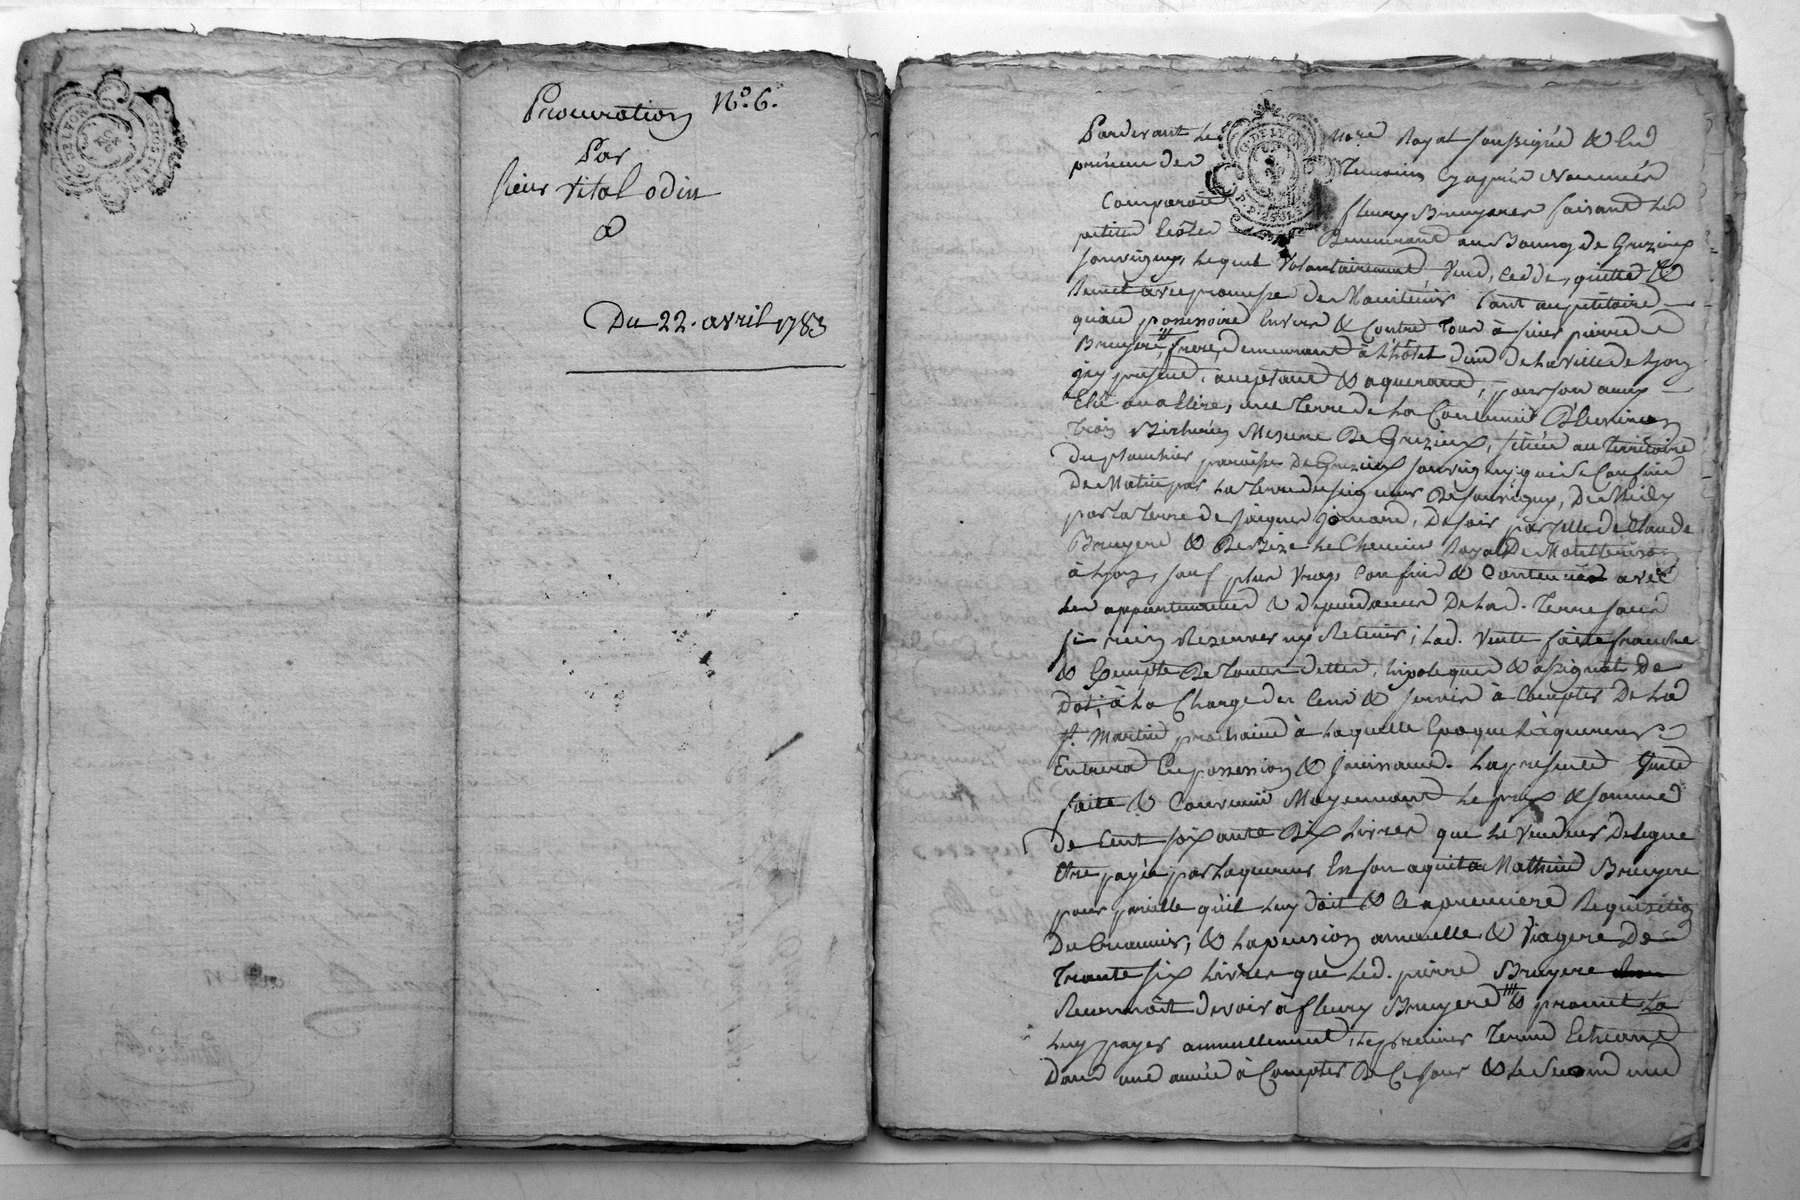 Procuration N.o 6.
Par
sieur vital odin
a
Du 22. avril 1783
Pardevant le no.re Royal soussigné & les
présence des Temoins cy après Nommés
Comparoit fleury Bruyeres faisant les
petites Ecoles Demeurant au Bourg de Gruzieux
souvigny, lequel volontairement vend, cedde, quitte &
Remet avec promesse de Maintenir tant au petitoire
qu'au possessoire Envers & Contre Tous à sieur pierre
Bruyere, frere, demeurant à L'hôtel dieu de La Ville de Lyon
icy présent, acceptant & aquerant, pour son amy
Elu ou a Elire, une Terre de La Contenue D'Environ
trois Bicherées Mesure De Gruzieux, située au Territoire
Du planchier paroisse De Gruzieux souvigny, qui se Confine
De Matin par La terre du seigneur De souvigny, De Midy
par La terre de jacques jomard, De soir par celle de Claude
Bruyere & De Bize Le Chemin Royal De Montbrison
à Lyon, sauf plus vrays Confins & Contenües avec
Les appartenances & dependances De Lad. Terre sans
si rien Rezerver ny Retenir; Lad. vente faite franche
& Exempte De toutes dettes, hipoteques & assignats De
Dot, à La Charge des Cens & servis à Compter De La
S.t Martin prochaine à Laquelle Epoque L'aquereur
Entrera En possession & jouissance. La presente vente
faite & Convenüe Moyennant Le prix & somme
De Cent soixante Dix Livres que Le Vendeur Delegue
Etre payée par L'aquereur En son aquit à Mathieu Bruyere
pour pareille qu'il Luy doit & Ce a premiere Requisition
Du Creancier, & La pension annuelle & Viagere De
Trante six Livres que Led. pierre Bruyere
Reconnoit devoir à fleury Bruyere & promet La
Luy payer annuellement, Le premier Terme Echeant
Dans une année à Compter De Ce jour & Le Second une